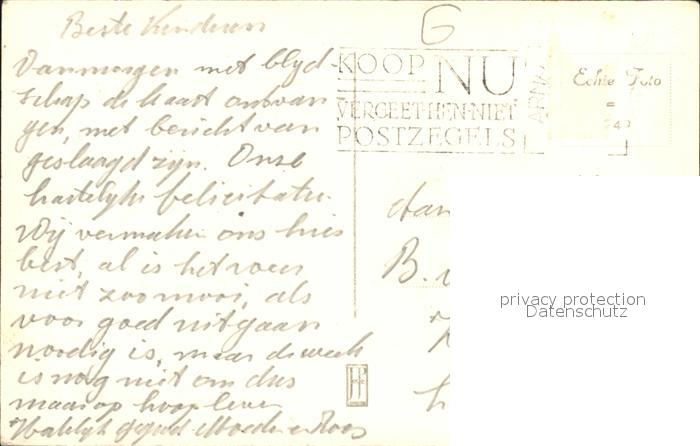 Beste Kinderen
Vanmorgen met blyd-
schap de kaart ontvan
gen, met bericht van
geslaagd zijn. Onze
hartelijke felicitatie.
Wij vermaken ons hier
best, al is het weer
niet zoo mooi, als
voor goed uitgaan
noodig is, maar de week
is nog niet om dus
maar op hoop leven
Hartelijk gegroet Moeder en Roos
G
KOOP NU
VERGEET-MIJN-NIET
POSTZEGELS
ARN
Echte Foto
Aan
B.
privacy protection
Datenschutz